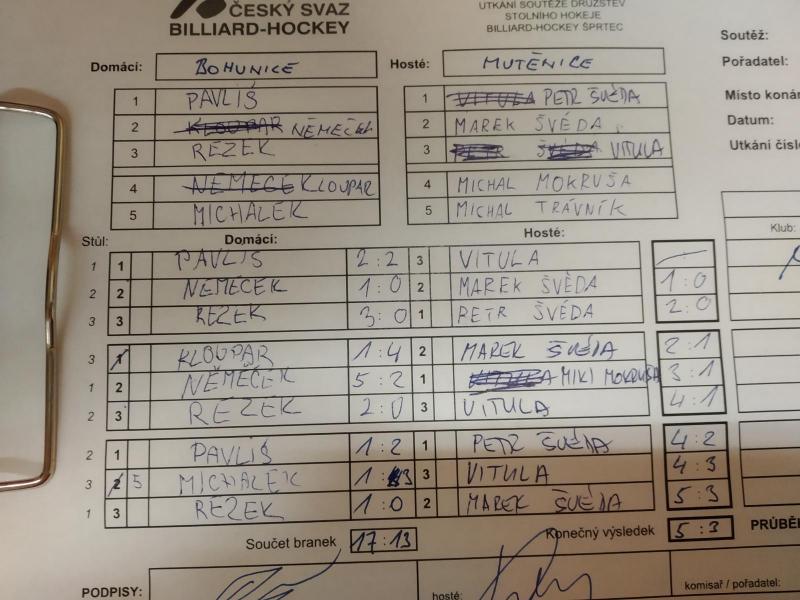 ČESKÝ SVAZ
BILLIARD-HOCKEY
UTKÁNÍ SOUTĚŽE DRUŽSTEV
STOLNÍHO HOKEJE
BILLIARD-HOCKEY ŠPRTEC
Soutěž:
Pořadatel:
Místo koná
Datum:
Utkání čísl
Domácí: BOHUNICE Hosté: MUTĚNICE
1 PAVLIŠ 1 VITULA PETR ŠVÉDA
2 KLOUPAR NĚMEČEK 2 MAREK ŠVÉDA
3 REZEK 3 PETR ŠVÉDA VITULA
4 NEMECE KLOUPAR 4 MICHAL MOKRUŠA
5 MICHALEK 5 MICHAL TRÁVNÍK
Stůl: Domácí: Hosté: Klub:
1 1 PAVLIŠ 2:2 3 VITULA
2 2 NEMECEK 1:0 2 MAREK ŠVÉDA 1:0
3 3 REZEK 3:0 1 PETR ŠVÉDA 2:0
3 1 KLOUPAR 1:4 2 MAREK ŠVÉDA 2:1
1 2 NĚMĚČEK 5:2 1 VITULA MIKI MOKRUŠA 3:1
2 3 REZEK 2:0 3 VITULA 4:1
2 1 PAVLIŠ 1:2 1 PETR ŠVÉDA 4:2
3 2 5 MICHALEK 1:3 3 VITULA 4:3
1 3 REZEK 1:0 2 MAREK ŠVÉDA 5:3
Součet branek 17:13 Konečný výsledek 5:3 PRŮBĚ
PODPISY: hosté: komisař / pořadatel: